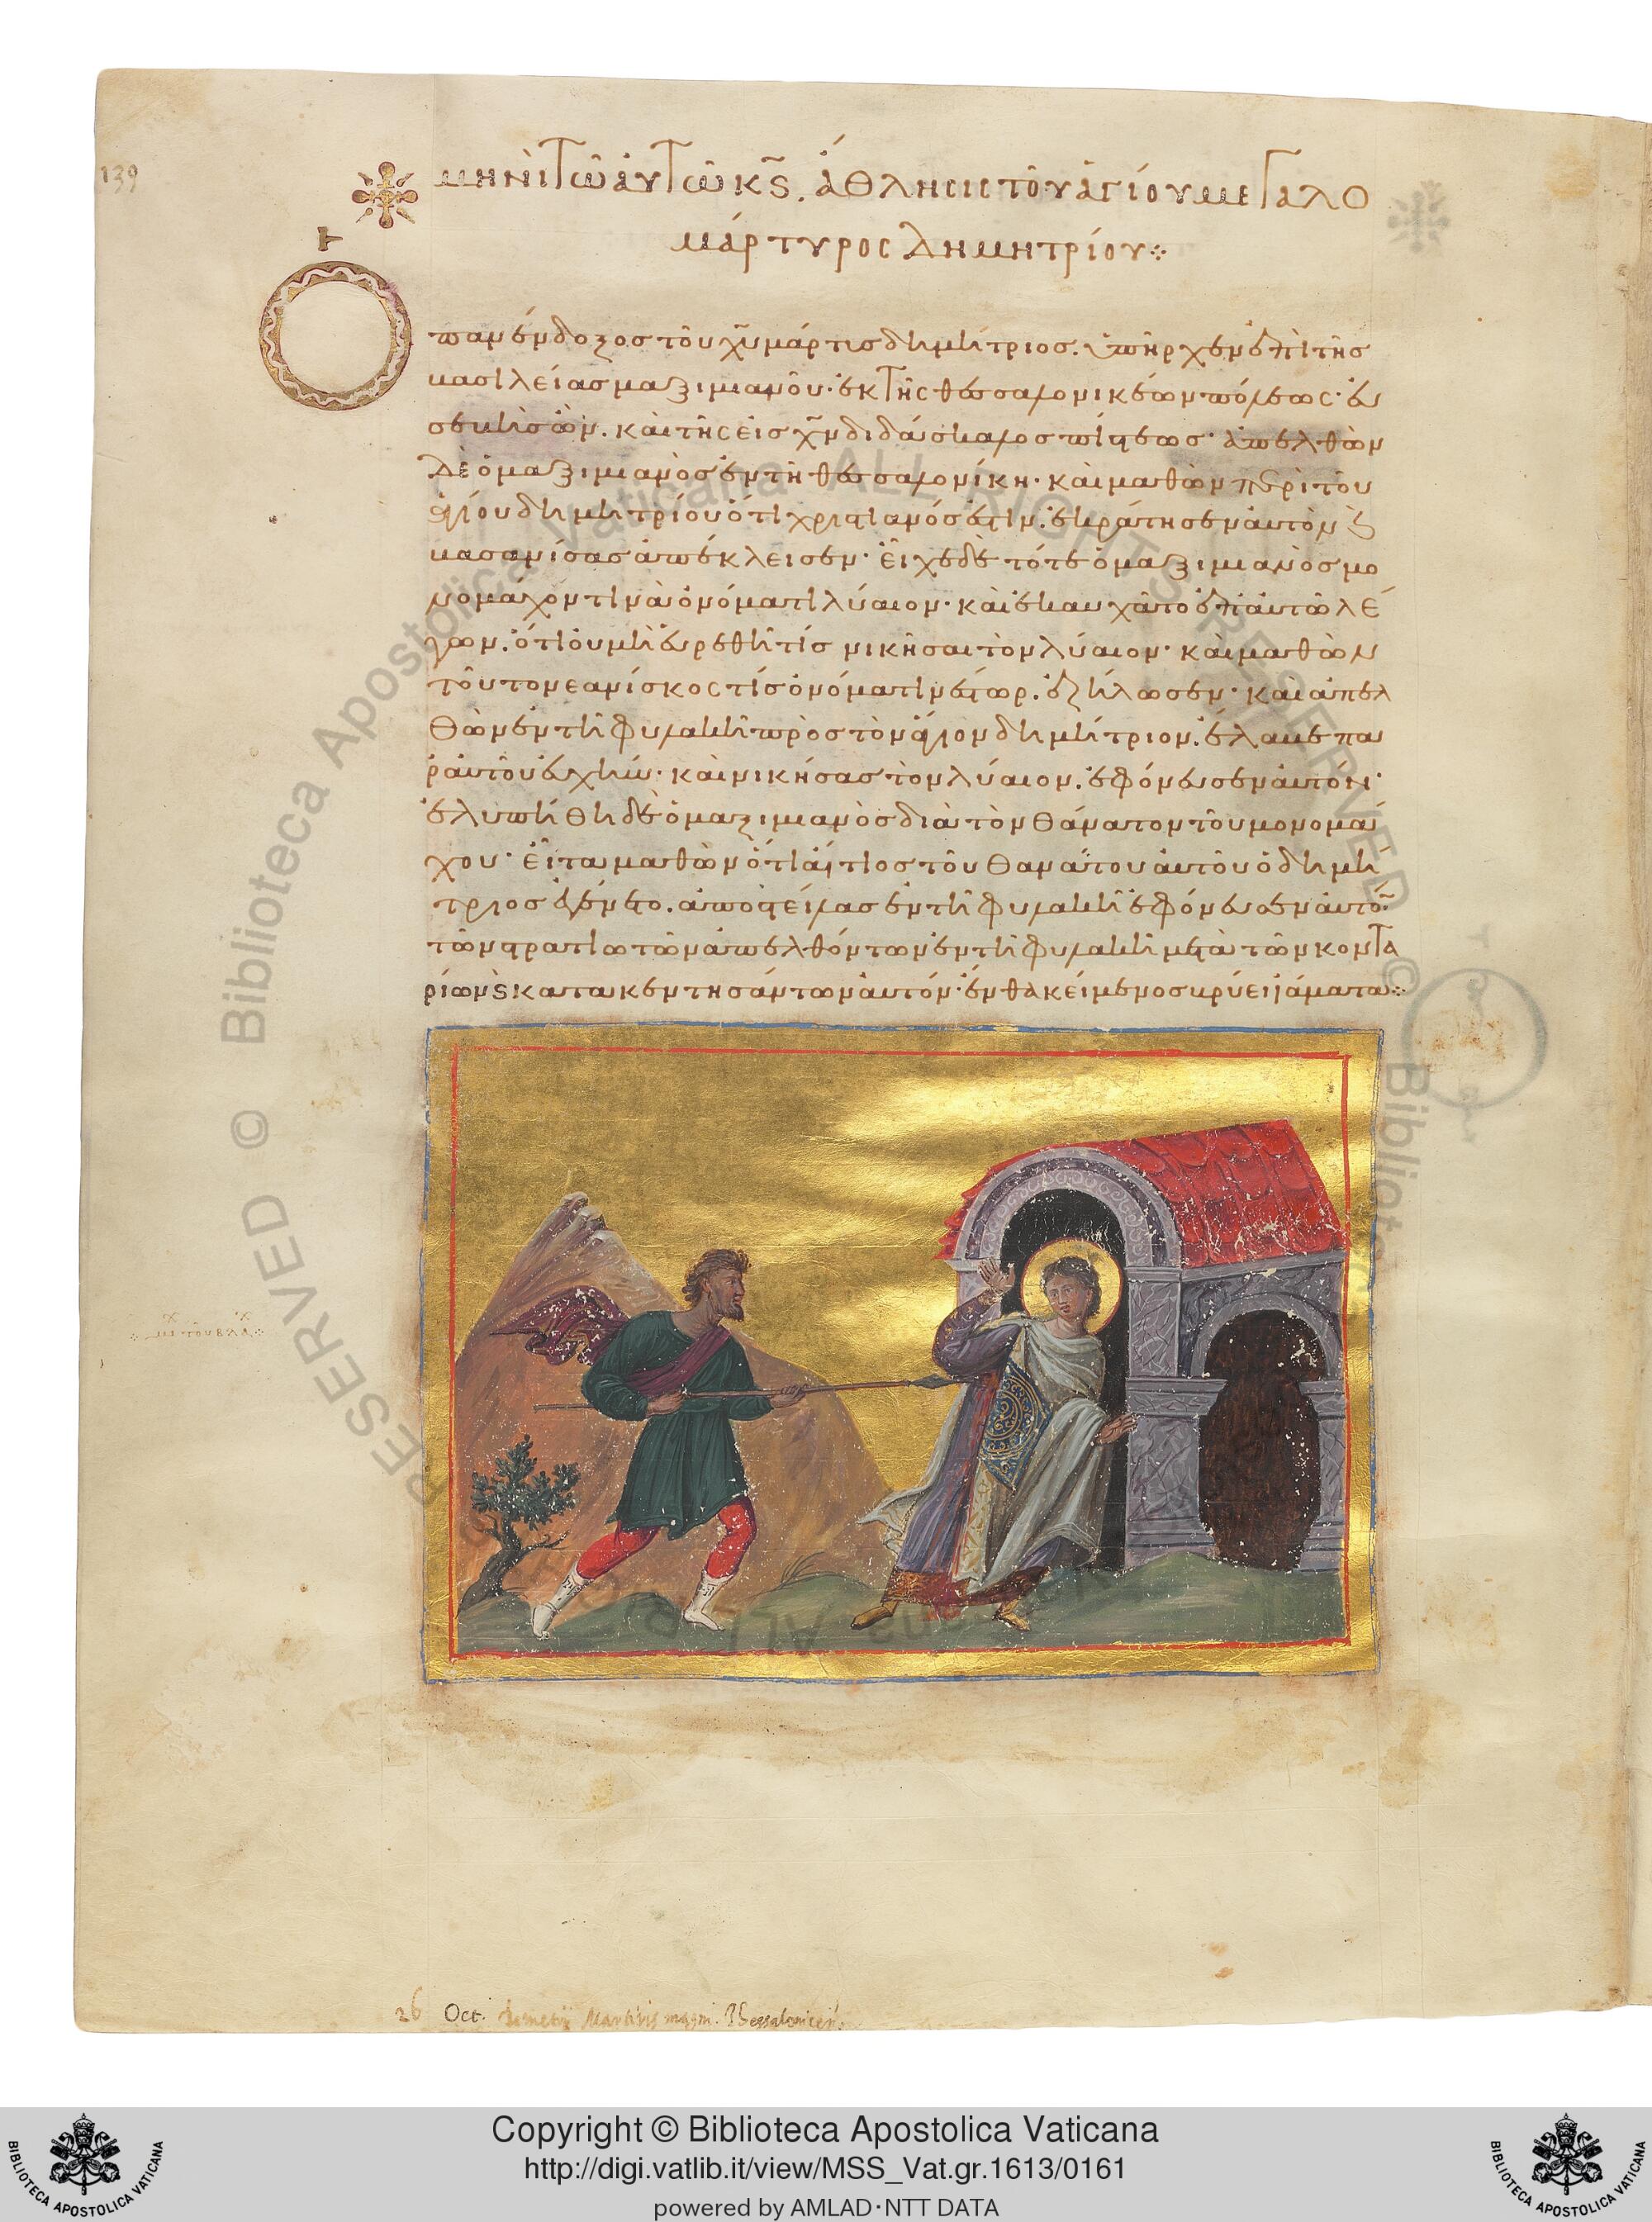 139
μηνὶ τῶ αὐτῶ κς̄. ἄθλησις τοῦ ἁγίου μεγαλο
μάρτυρος Δημητρίου
Ὁ
πανένδοξος τοῦ χῡ μάρτις δημήτριος. ὑπῆρχεν ἐπὶ τῆς
βασιλείας μαξιμιανοῦ· ἐκ τῆς θεσσαλονικέων πόλεως· εὐ
σεβὴς ὢν. καὶ τῆς εἰς χ̄ν διδάσκαλος πίστεως· ἀπελθὼν
δὲ ὁ μαξιμιανὸς ἐν τῆ θεσσαλονίκη· καὶ μαθὼν περὶ τοῦ
ἁγίου δημητρίου ὅτι χριστιανός ἐστιν. ἐκράτησεν αὐτὸν ϗ
βασανίσας ἀπέκλεισεν· εἶχε δὲ τότε ὁ μαξιμιανὸς μο
νομάχόν τινα ὀνόματι λύαιον· καὶ ἐκαυχᾶτο ἐπ αὐτῶ λέ
γων. ὅτι οὐ μὴ εὑρεθῆ τίς νικῆσαι τὸν λύαιον· καὶ μαθὼν
τοῦτο νεανίσκος τίς ὀνόματι νέστωρ. ἐζήλωσεν· καὶ ἀπελ
θὼν ἐν τῆ φυλακῆ πρὸς τὸν ἅγιον δημήτριον. ἔλαβε πα
ρ αὐτοῦ εὐχὴν· καὶ νικήσας τὸν λύαιον. ἐφόνευσεν αὐτόν·
ἐλυπήθη δὲ ὁ μαξιμιανὸς διὰ τὸν θάνατον τοῦ μονομά
χου· εἶτα μαθὼν ὅτι αἴτιος τοῦ θανάτου αὐτοῦ ὁ δημή
τριος ἐγένετο. ἀποστείλας ἐν τῆ φυλακῆ ἐφόνευσεν αὐτό̄·
τῶν στρατιωτῶν ἀπελθόντων ἐν τῆ φυλακῆ μετὰ τῶν κοντα
ρίων ϗ κατακεντησάντων αὐτόν· ἔνθα κείμενος βρύει ἰάματα
26 Oct. Demetrij Martiris magni. Thessalonicen.
© Biblioteca Apostolica Vaticana ALL RIGHTS RESERVED © Biblioteca Apostolica Vaticana ALL RIGHTS RESERVED
Copyright © Biblioteca Apostolica Vaticana
http://digi.vatlib.it/view/MSS_Vat.gr.1613/0161
powered by AMLAD·NTT DATA
BIBLIOTECA APOSTOLICA VATICANA
BIBLIOTECA APOSTOLICA VATICANA